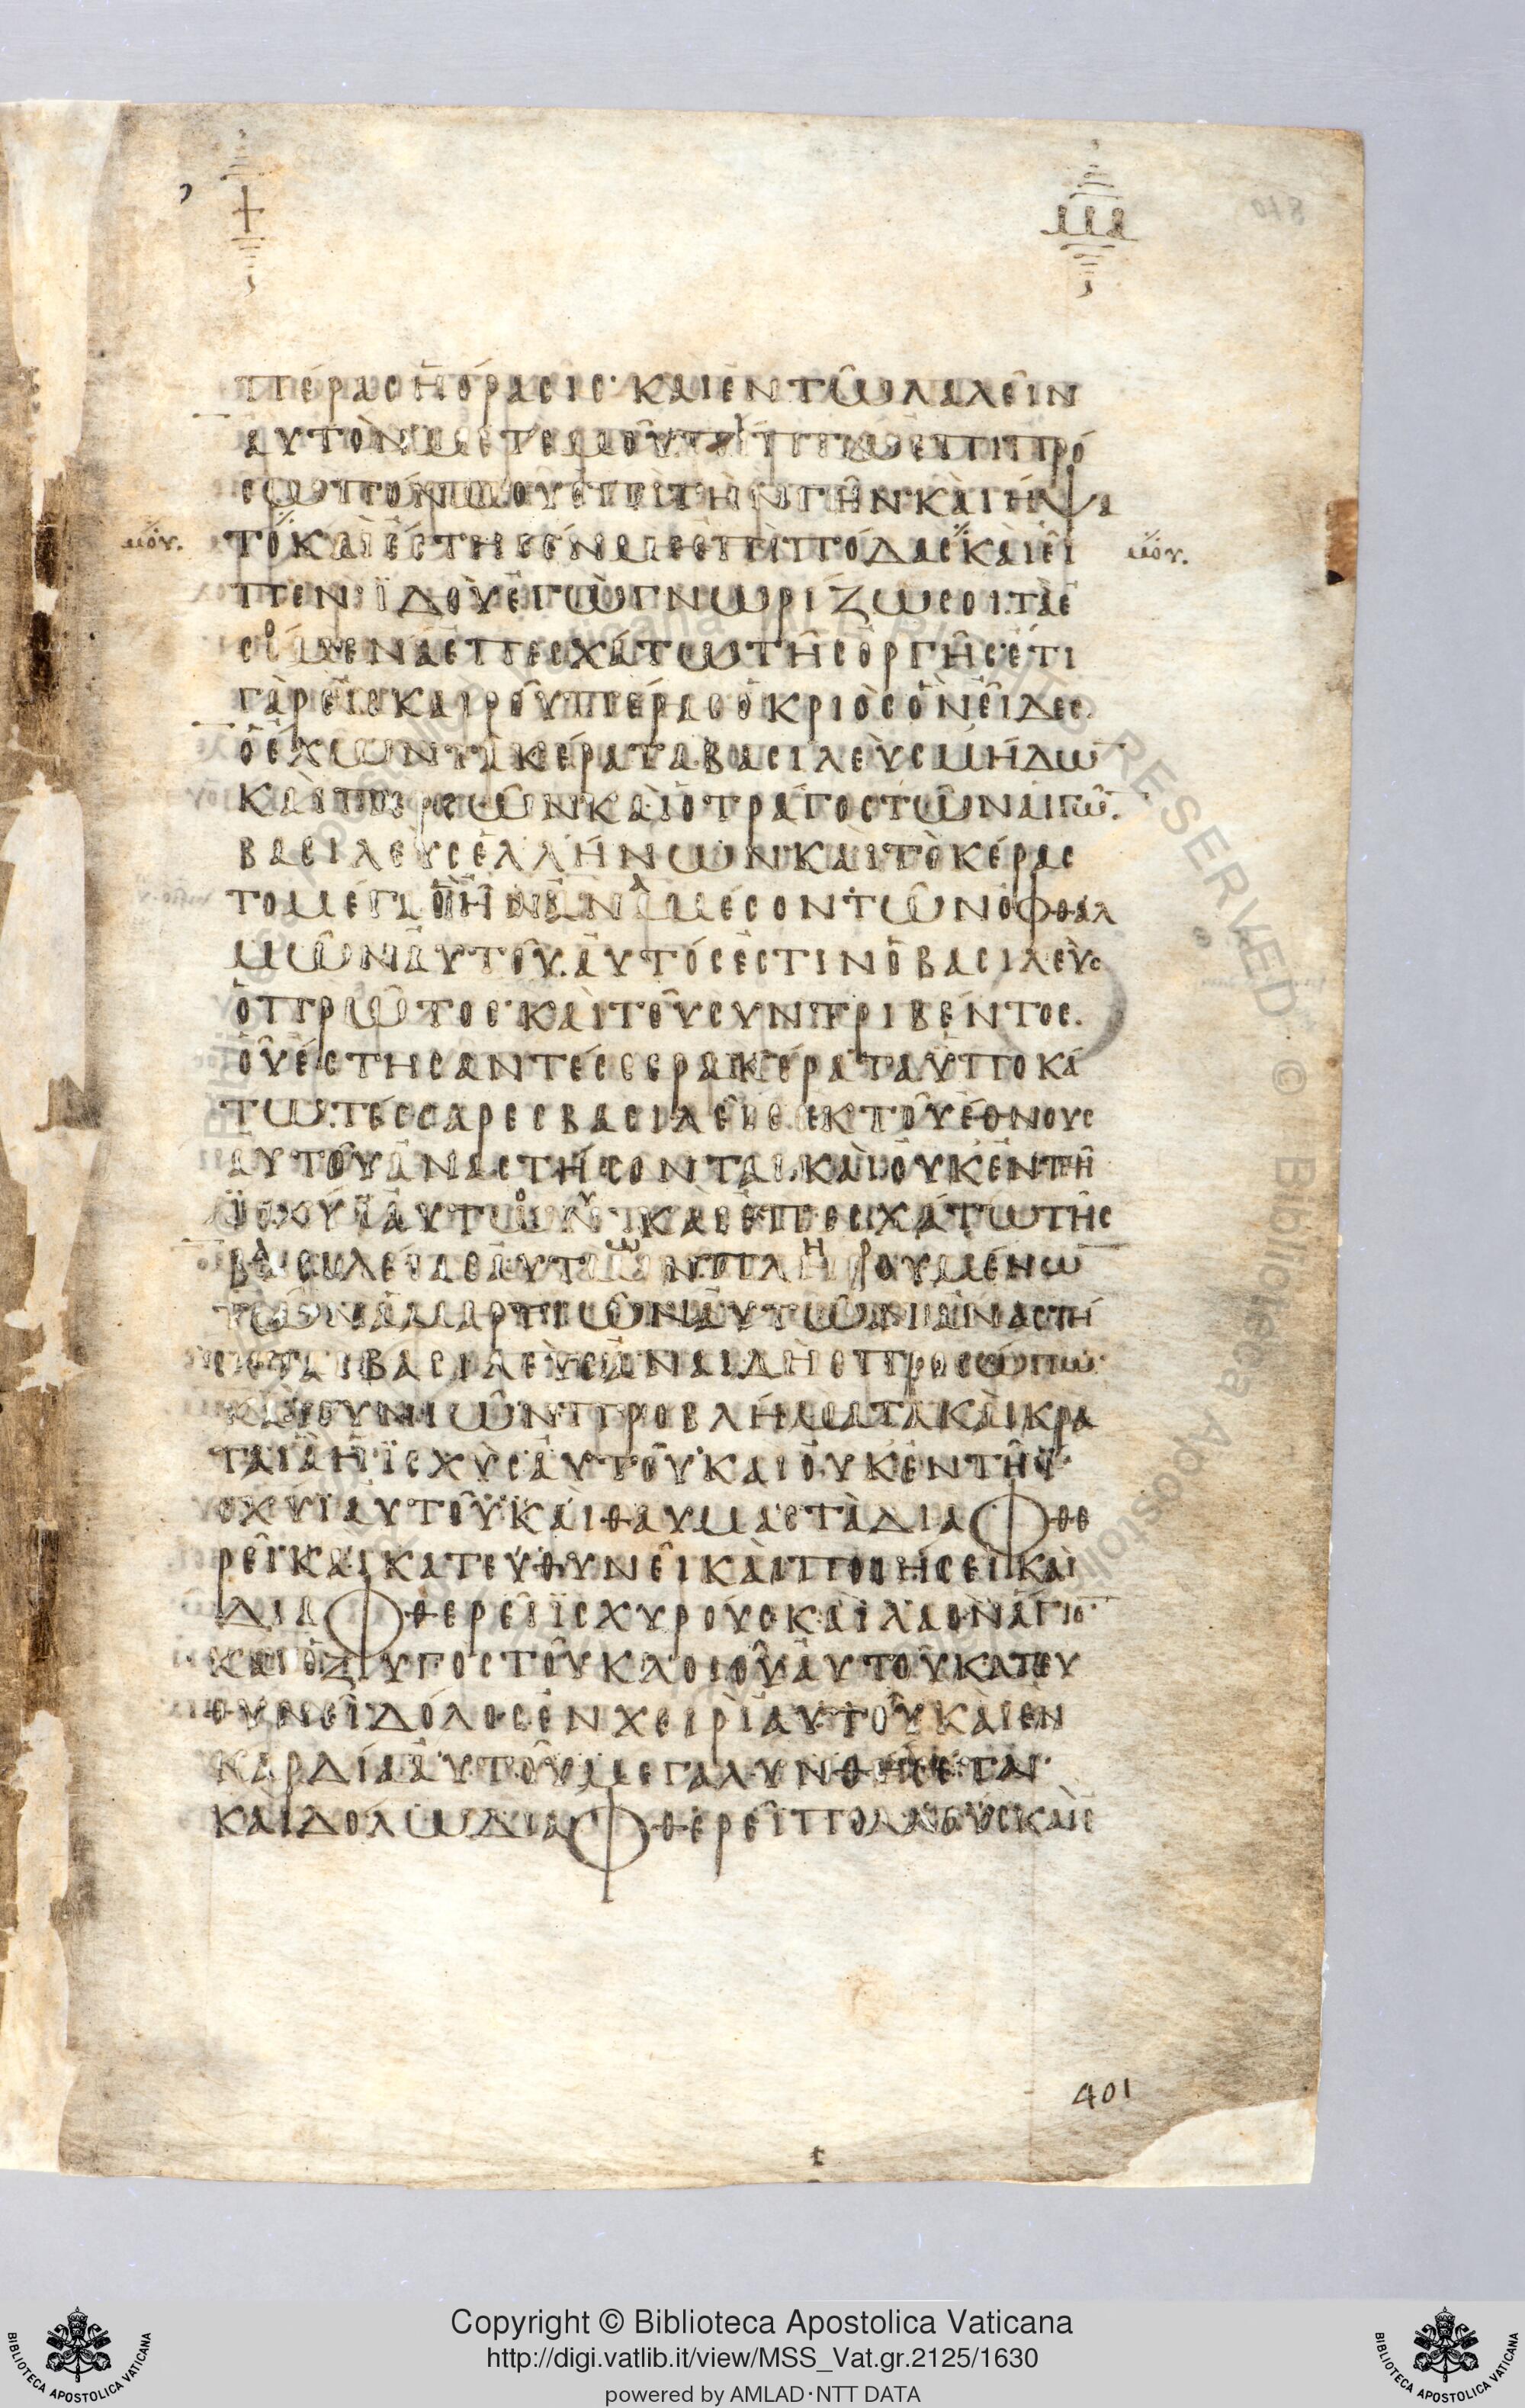 μα
πέρας ἡ ὅρασις· καὶ ἐν τῶ λαλεῖν
αὐτὸν μετ ἐμοῦ πίπτω ἐπὶ πρό
σωπόν μου ἐπὶ τὴν γῆν καὶ ἥψα
μόυ. το καὶ ἔστησέν με ἐπὶ πόδας καὶ εἶ μόυ.
πεν ἰδοὺ ἐγὼ γνωρίζω σοι τὰ ἐ
σόμενα ἐπ ἐσχάτω τῆς ὀργῆς ἔτι
γὰρ εἰς καιροῦ πέρας ὁ κριὸς ὃν εἶδες
ὁ ἔχων τὰ κέρατα βασιλεὺς μήδω̅
καὶ περσῶν καὶ ὁ τράγος τῶν αἰγῶ̅.
βασιλεὺς ἑλλήνων καὶ τὸ κέρας
το μέγα ὃ ἦν ἀνὰ μέσον τῶν ὀφθαλ
μῶν αὐτοῦ. αὐτός ἐστιν ὁ βασιλεὺς
ὁ πρῶτος· καὶ τοῦ συντριβέντος.
οὗ ἔστησαν τέσσερα κέρατα ὑποκά
τω. τέσσαρες βασιλεῖς ἐκ τοῦ ἔθνους
αὐτοῦ ἀναστήσονται. καὶ οὐκ ἐν τῆ
ἰσχύϊ αὐτῶν καὶ ἐπ ἐσχάτω τῆς
βασιλείας αὐτῶν πληρουμένω̅
τῶν ἁμαρτιῶν αὐτῶν ἀναστή
σεται βασιλεὺς ἀναιδὴς προσώπω·
καὶ συνιῶν προβλήματα καὶ κρα
ταιὰ ἡ ἰσχὺς αὐτοῦ καὶ οὐκ ἐν τῆ ἰ
σχύϊ αὐτοῦ καὶ θαυμαστὰ διαφθε
ρεῖ καὶ κατευθυνεῖ καὶ ποιήσει καὶ
διαφθερεῖ ἰσχυροὺς καὶ λαὸν ἅγιο̅
καὶ ὁ ζυγὸς τοῦ κλοιοῦ αὐτοῦ κατευ
θυνεῖ δόλος ἐν χειρὶ αὐτοῦ καὶ ἐν
καρδία αὐτοῦ μεγαλυνθήσεται·
καὶ δόλω διαφθερεῖ πολλοὺς καὶ ἐ
401
Copyright © Biblioteca Apostolica Vaticana
http://digi.vatlib.it/view/MSS_Vat.gr.2125/1630
powered by AMLAD·NTT DATA